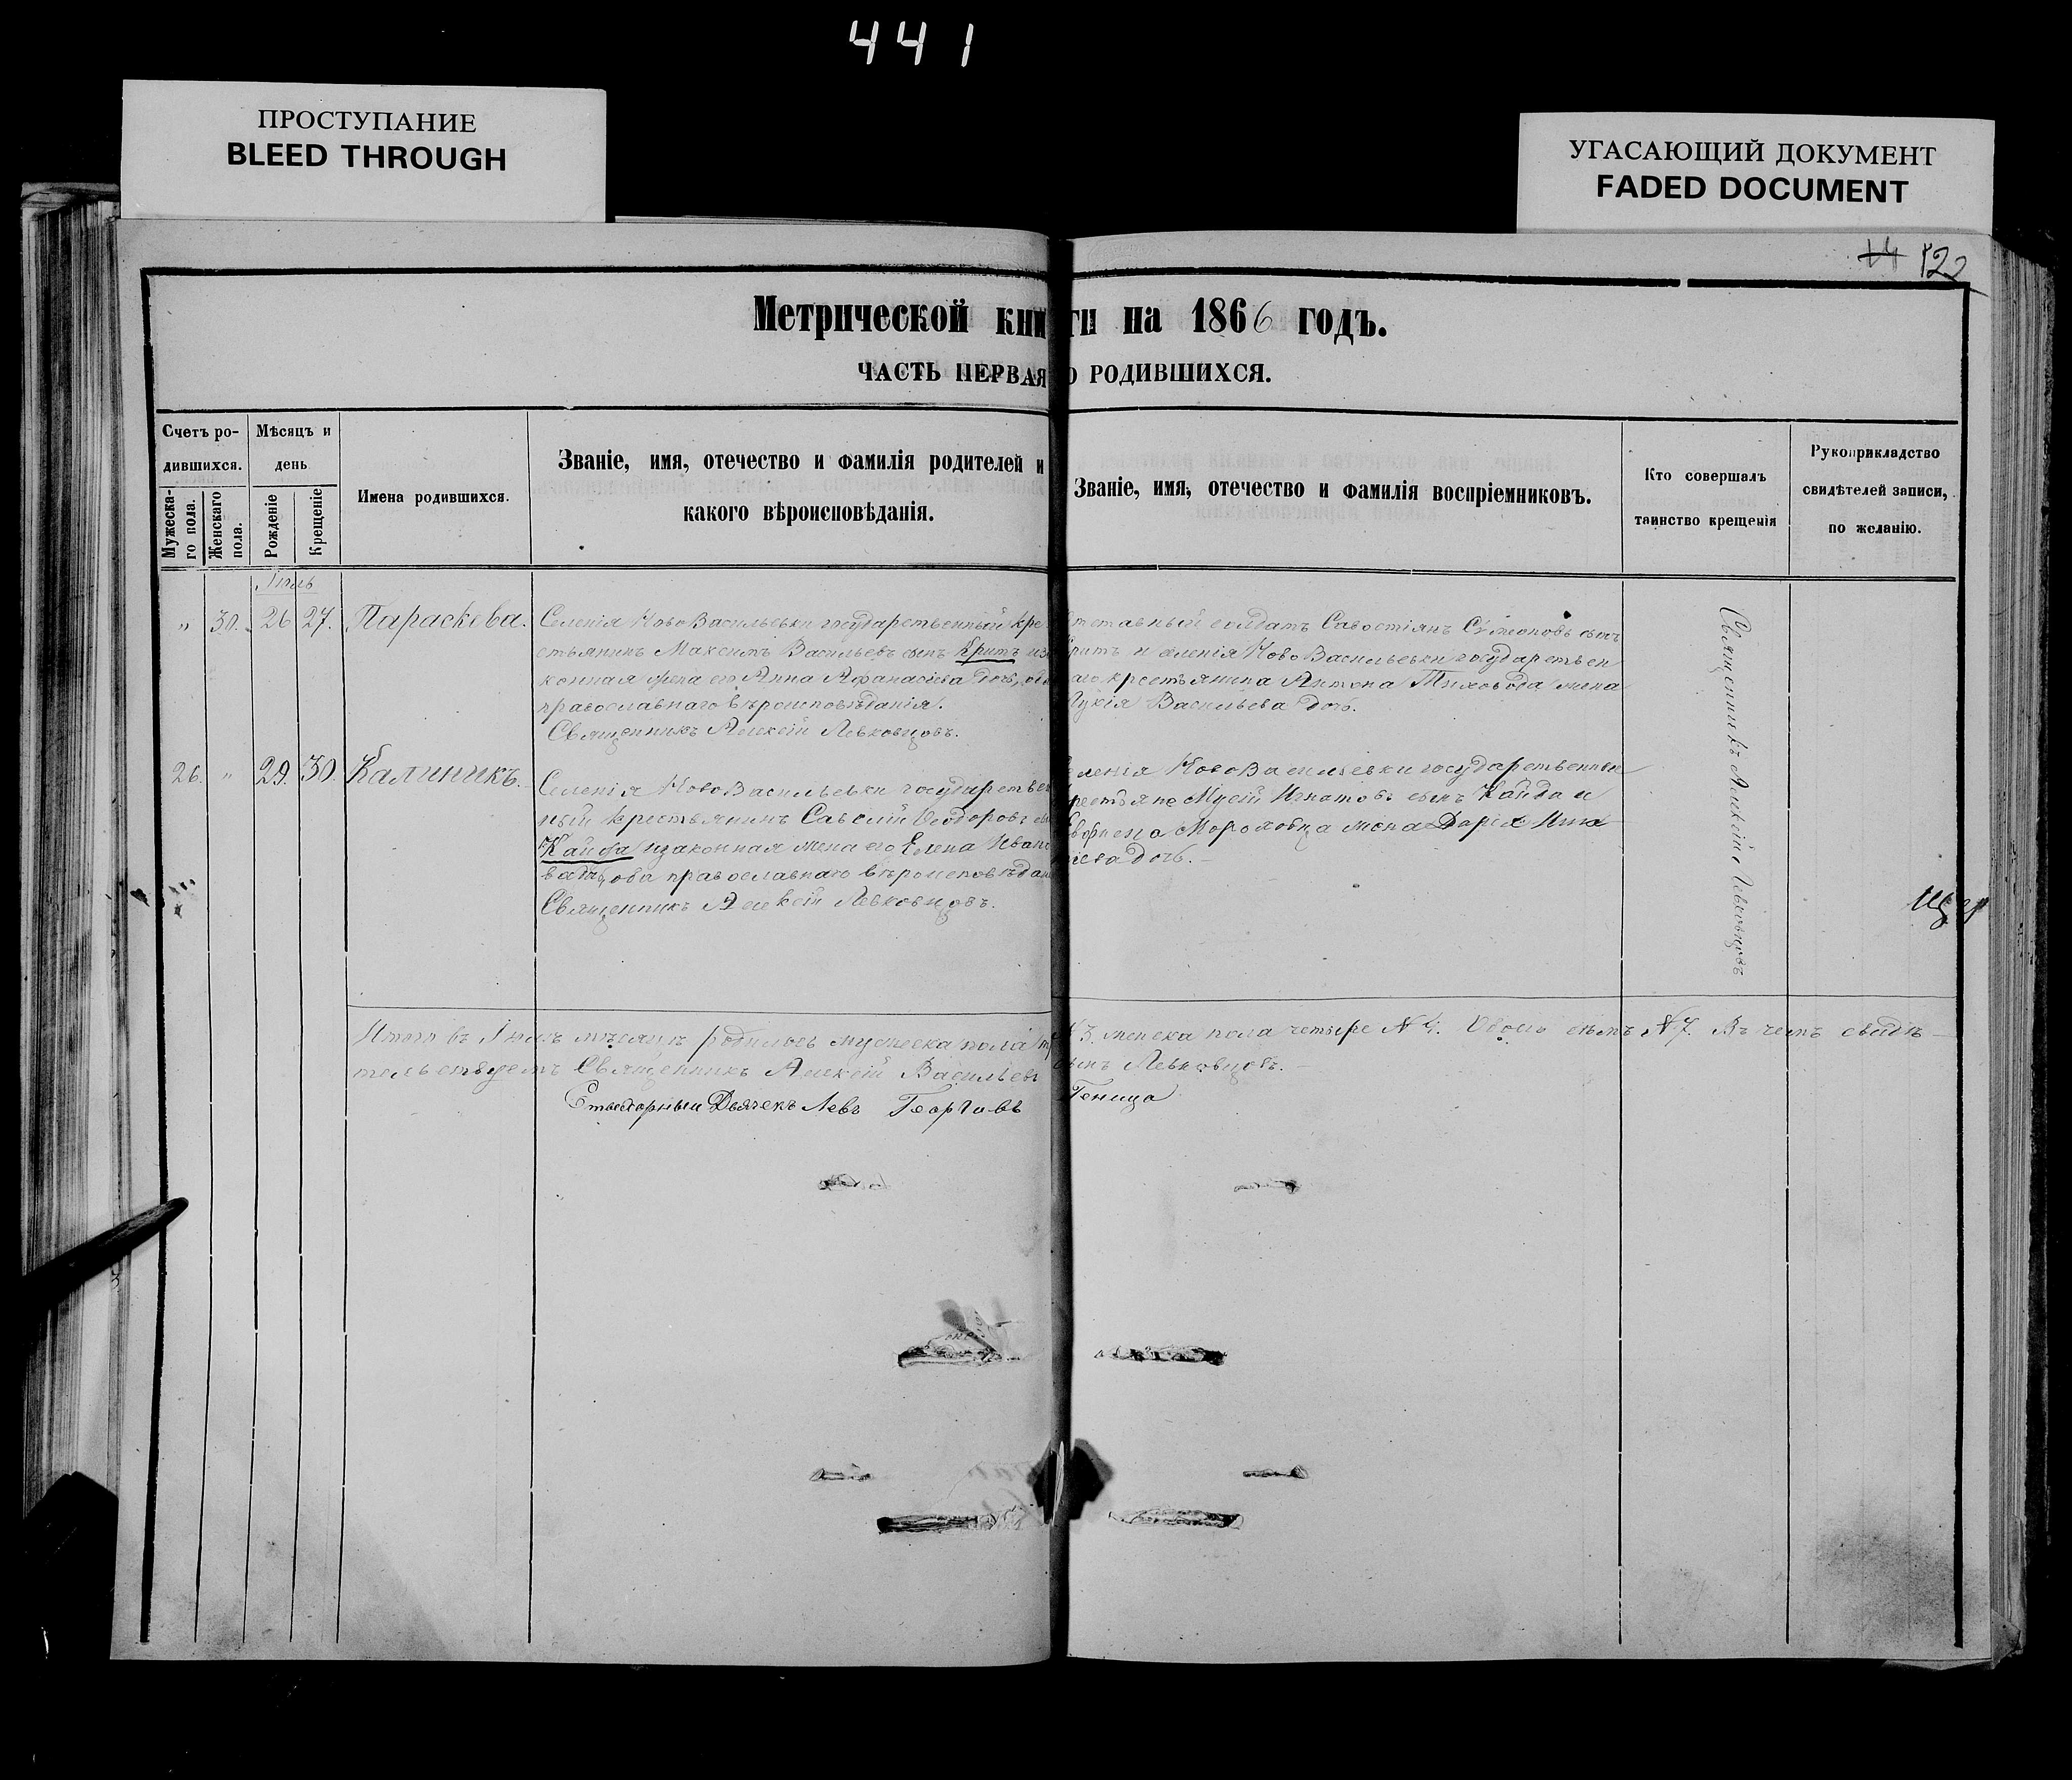 441
ПРОСТУПАНИЕ
BLEED THROUGH
УГАСАЮЩИЙ ДОКУМЕНТ
FADED DOCUMENT
14 122
Метрической книги на 1866 годъ.
ЧАСТЬ ПЕРВАЯ О РОДИВШИХСЯ.
Счетъ родившихся.
Мужескаго пола.
Женскаго пола.
Мѣсяцъ и день
Рожденіе
Крещеніе
Имена родившихся.
Званіе, имя, отечество и фамилія родителей и
какого вѣроисповѣданія.
Званіе, имя, отечество и фамилія воспріемниковъ.
Кто совершалъ
таинство крещенія
Рукоприкладство
свидѣтелей записи,
по желанію.
„ 30. 26 27. Параскева.
Селенія НовоВасильевки государственный кре
стьянинъ Максимъ Васильевъ сынъ Критъ
конная жена его Анна Афанасіева дочь,
православнаго вѣроисповѣданія.
Священникъ Алексій Левковцовъ.
солдатъ Савостіянъ Сѵмеоновъ сынъ
Критъ и селенія НовоВасильевки государствен
наго крестьянина Антона жена
Васильева дочь.
26. „ 29. 30. Калиникъ.
Селенія НовоВасильевки государствен
ный крестьянинъ Савелій Ѳеодоровъ
Кайда изаконная жена его Елена Ивано
ва дочь, оба православнаго вѣроисповѣдан
Священникъ Алексій Левковцовъ.
Селенія НовоВасильевки государственные
крестьяне Мусій Игнатовъ сынъ Кайда и
жена Дарія
дочь.
Священникъ Алексій Левковцовъ
Итого въ мѣсяцѣ родилось мужеска пола № 3. женска пола четыре № 4. Обоего семъ № 7. Въ чемъ свидѣ
тельствуемъ Священникъ Алексій Васильевъ сынъ Левковцовъ.
Дьячекъ Левъ Георгіевъ Геница